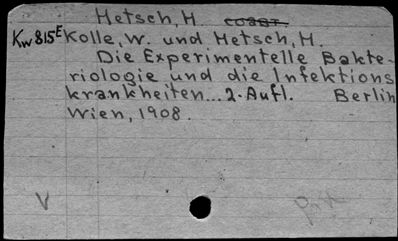 Hetsch, H.
Kw815E Kolle, W. und Hetsch, H.
Die Experimentelle Bakte-
riologie und die Infektions
krankheiten... 2. Aufl. Berlin
Wien, 1908.
V